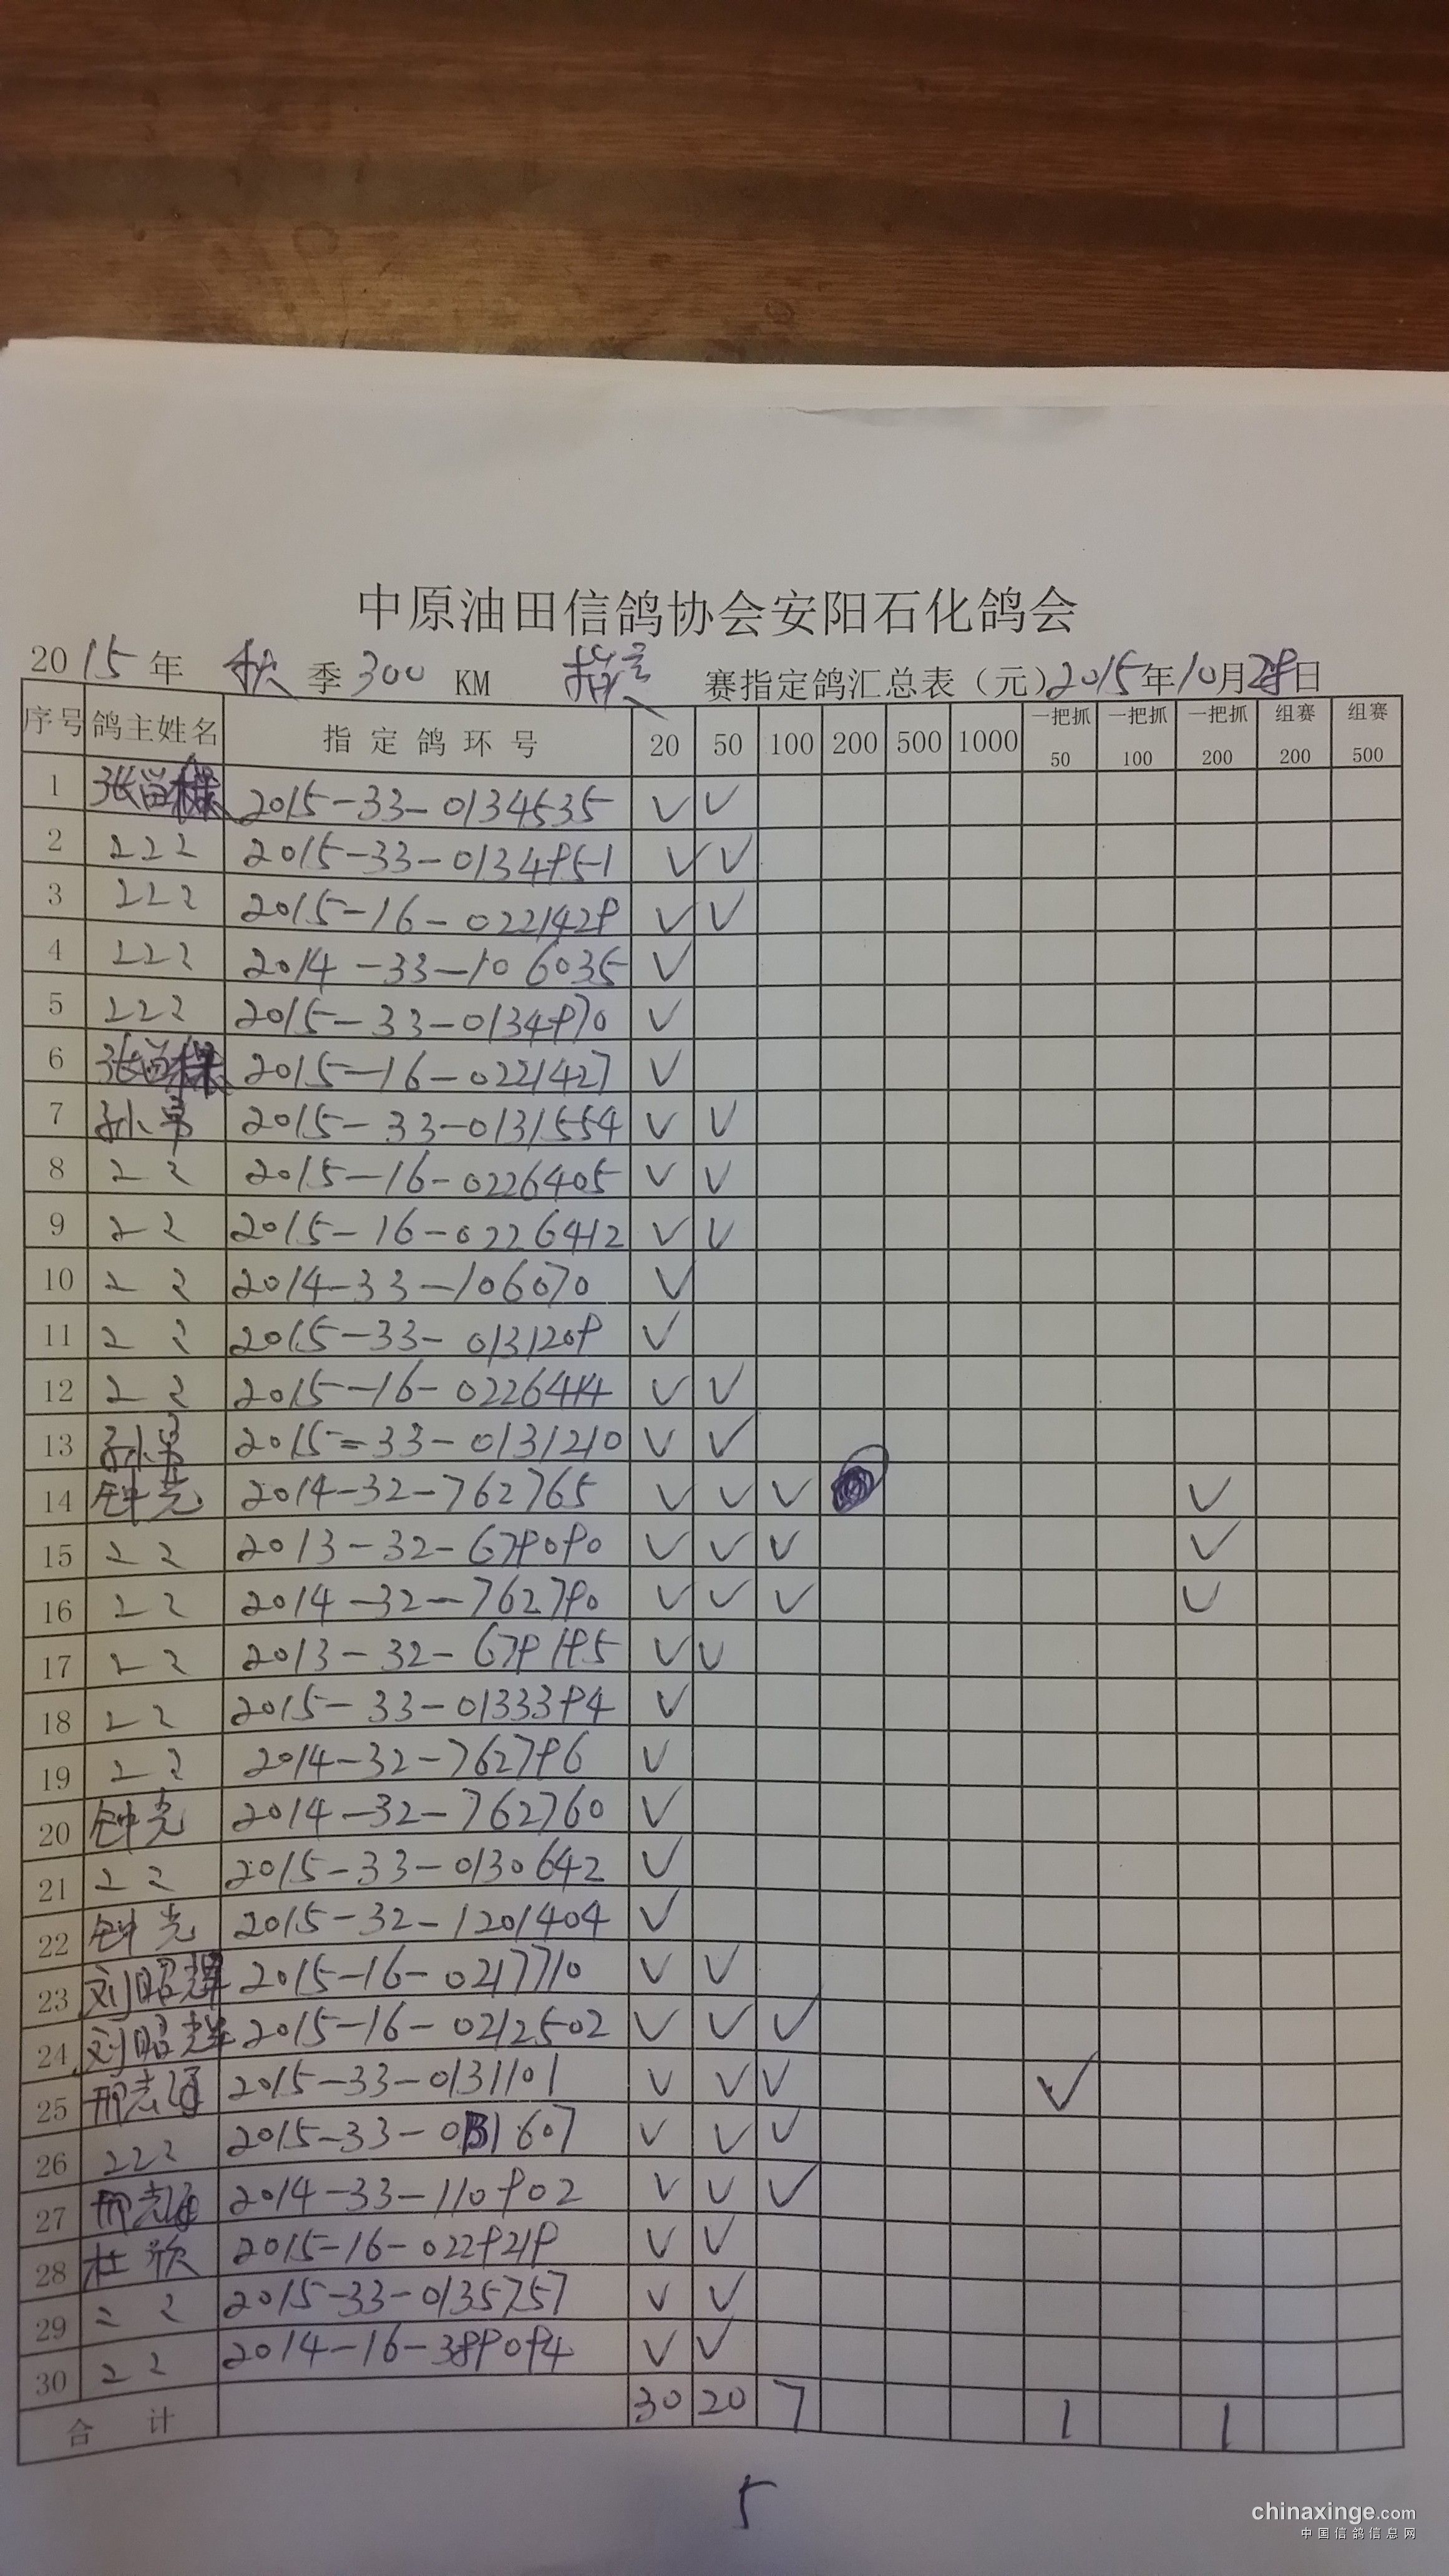 中原油田信鸽协会安阳石化鸽会
2015年 秋 季 300 KM 指定 赛指定鸽汇总表（元）2015年10月29日
序号 鸽主姓名 指定鸽环号 20 50 100 200 500 1000 一把抓50 一把抓100 一把抓200 组赛200 组赛500
1 张 2015-33-0134535 √ √
2 〃 〃 〃 2015-33-0134951 √ √
3 〃 〃 〃 2015-16-0221429 √ √
4 〃 〃 〃 2014-33-106035 √
5 〃 〃 〃 2015-33-0134970 √
6 张 2015-16-0221427 √
7 孙小勇 2015-33-0131554 √ √
8 〃 〃 2015-16-0226405 √ √
9 〃 〃 2015-16-0226412 √ √
10 〃 〃 2014-33-106070 √
11 〃 〃 2015-33-0131209 √
12 〃 〃 2015-16-0226414 √ √
13 孙小勇 2015-33-0131210 √ √
14 钟亮 2014-32-762765 √ √ √ √
15 〃 〃 2013-32-679090 √ √ √ √
16 〃 〃 2014-32-762790 √ √ √ √
17 〃 〃 2013-32-679195 √ √
18 〃 〃 2015-33-0133394 √
19 〃 〃 2014-32-762796 √
20 钟亮 2014-32-762760 √
21 〃 〃 2015-33-0130642 √
22 钟亮 2015-32-1201404 √
23 刘昭辉 2015-16-0217710 √ √
24 刘昭辉 2015-16-0212502 √ √ √
25 邢志通 2015-33-0131101 √ √ √ √
26 〃 〃 〃 2015-33-0131607 √ √ √
27 邢志通 2014-33-110902 √ √ √
28 杜欣 2015-16-0229219 √ √
29 〃 〃 2015-33-0135757 √ √
30 〃 〃 2014-16-389094 √ √
合计 30 20 7 1 1
5
chinaxinge.com
中国信鸽信息网